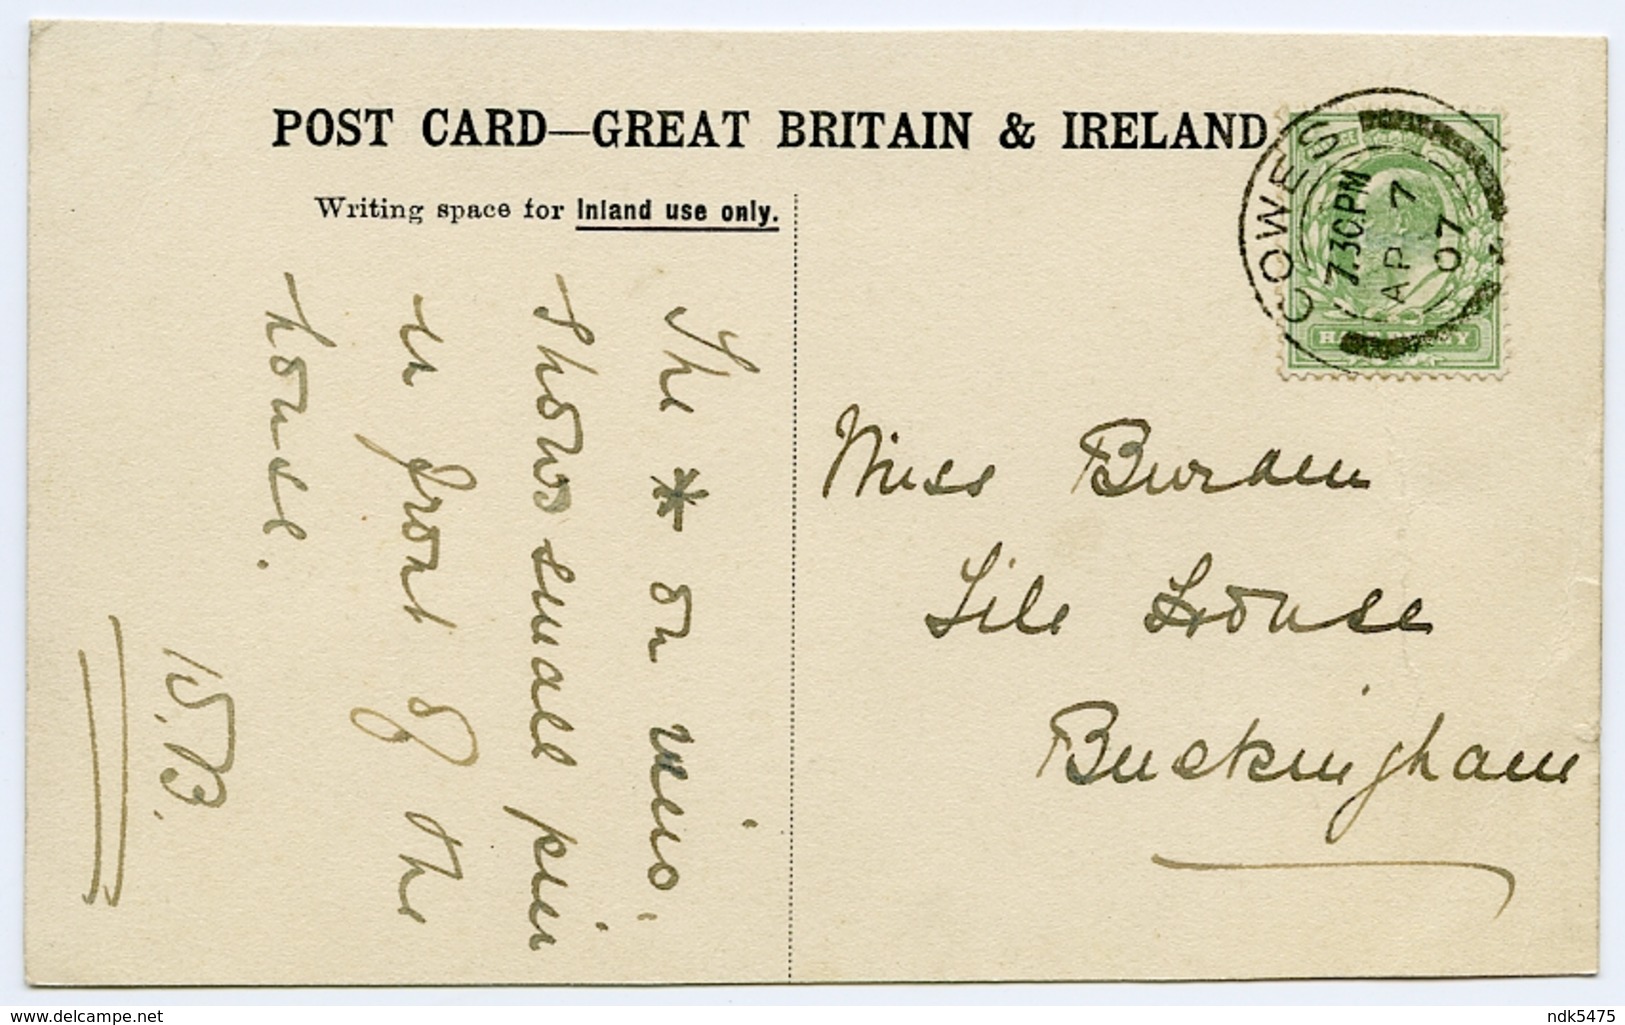 POST CARD—GREAT BRITAIN & IRELAND
Writing space for Inland use only.
COWES
7.30PM
AP 7
07
HALFPENNY
The * on
shows small pier
in front of the
house.
B.
Miss Burden
House
Buckingham
www.delcampe.net
ndk5475